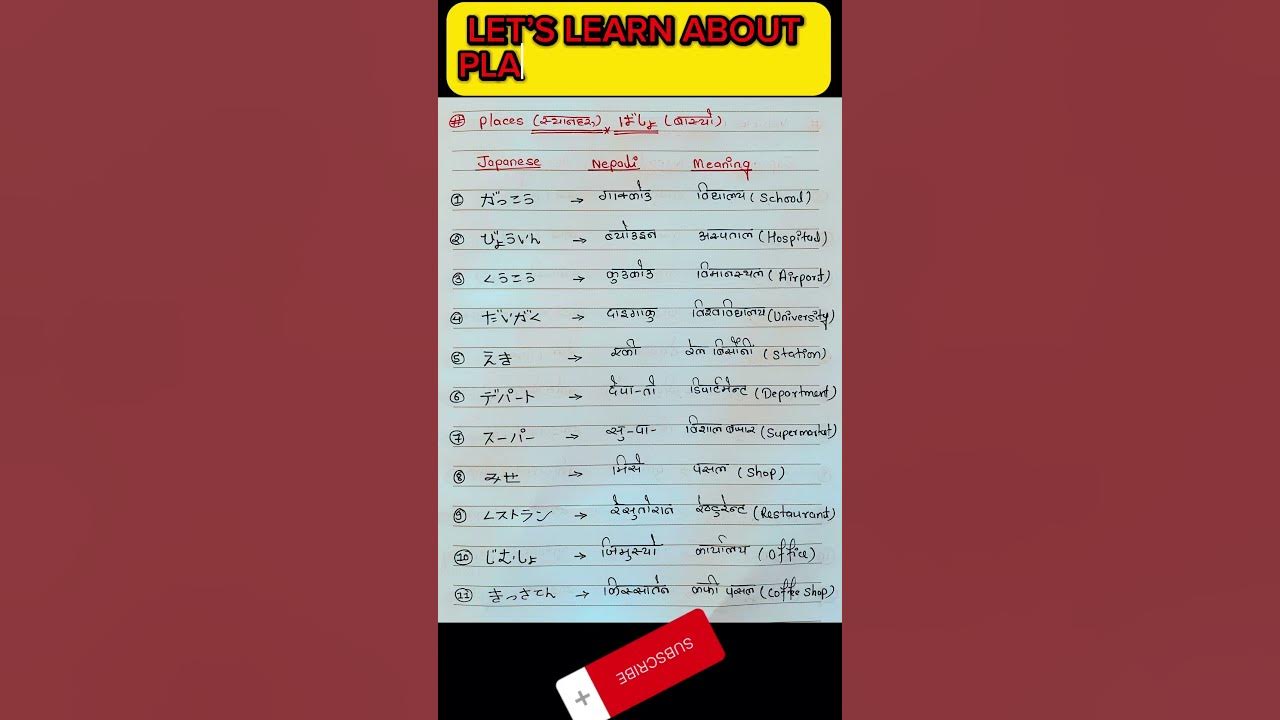 LET'S LEARN ABOUT
PLA
# Places (स्थानहरु) ばしょ (बास्यो)
Japanese Nepali Meaning
① がっこう → गाक्कोउ विद्यालय (School)
② びょういん → ब्योउइन अस्पताल (Hospital)
③ くうこう → कुउकोउ विमानस्थल (Airport)
④ だいがく → दाइगाकु विश्वविद्यालय (University)
⑤ えき → एकी रेल बिसौनी (Station)
⑥ デパート → देपा-तो डिपार्टमेन्ट (Department)
⑦ スーパー → सु-पा- विशाल बजार (Supermarket)
⑧ みせ → मिसे पसल (Shop)
⑨ レストラン → रेसुतोरान रेष्टुरेन्ट (Restaurant)
⑩ じむしょ → जिमुस्यो कार्यालय (Office)
⑪ きっさてん → किस्सातेन कफी पसल (Coffee Shop)
SUBSCRIBE